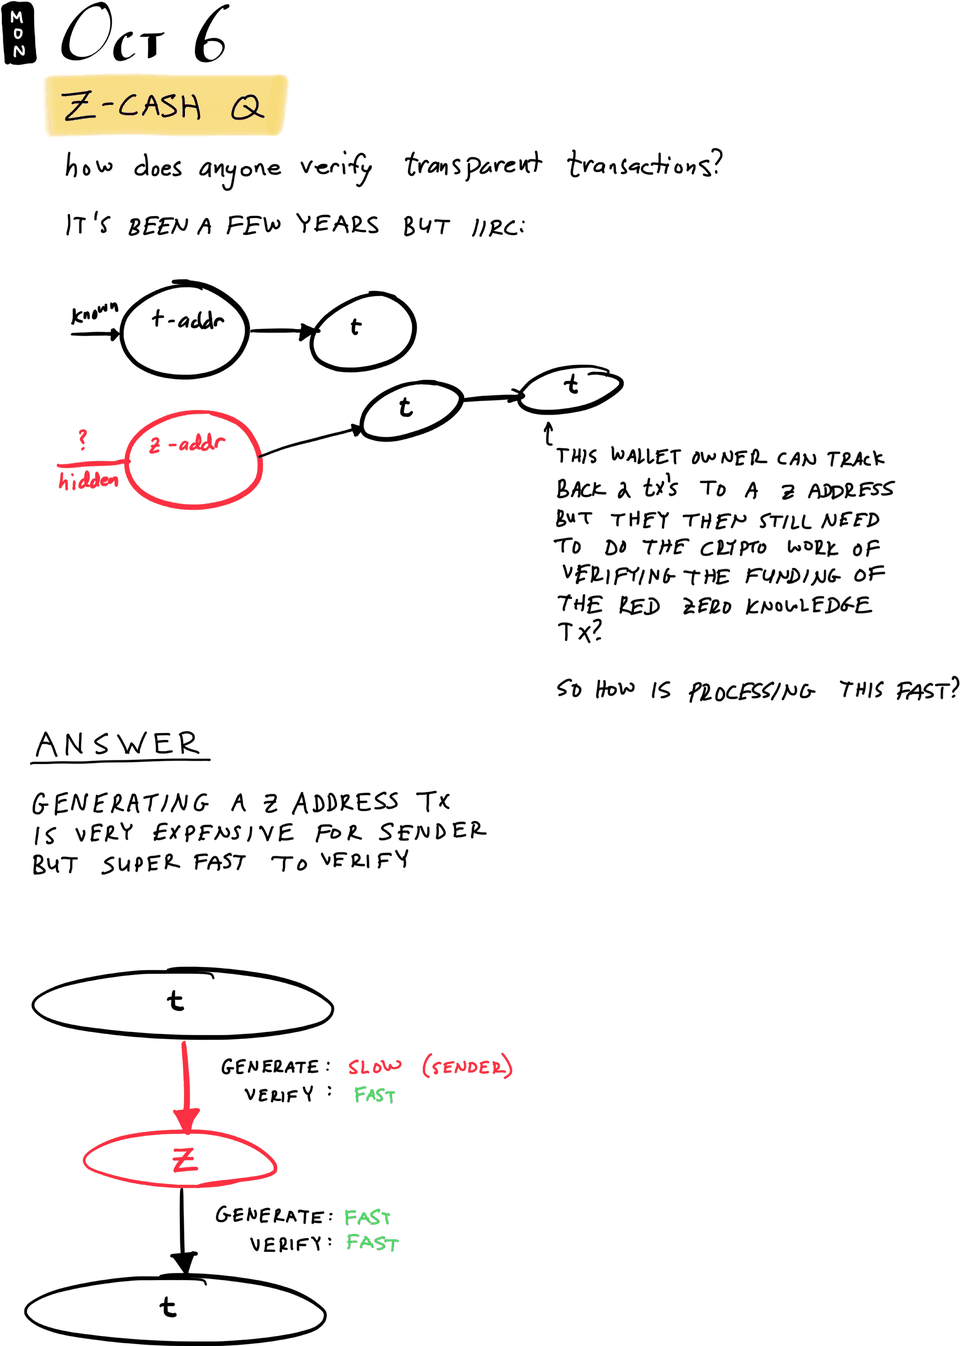 MON
OCT 6
Z-CASH Q
how does anyone verify transparent transactions?
IT'S BEEN A FEW YEARS BUT IIRC:
known
t-addr
t
t
t
?
hidden
z-addr
THIS WALLET OWNER CAN TRACK
BACK 2 tx's TO A Z ADDRESS
BUT THEY THEN STILL NEED
TO DO THE CRYPTO WORK OF
VERIFYING THE FUNDING OF
THE RED ZERO KNOWLEDGE
TX?
SO HOW IS PROCESSING THIS FAST?
ANSWER
GENERATING A Z ADDRESS TX
IS VERY EXPENSIVE FOR SENDER
BUT SUPER FAST TO VERIFY
t
GENERATE: SLOW (SENDER)
VERIFY: FAST
Z
GENERATE: FAST
VERIFY: FAST
t